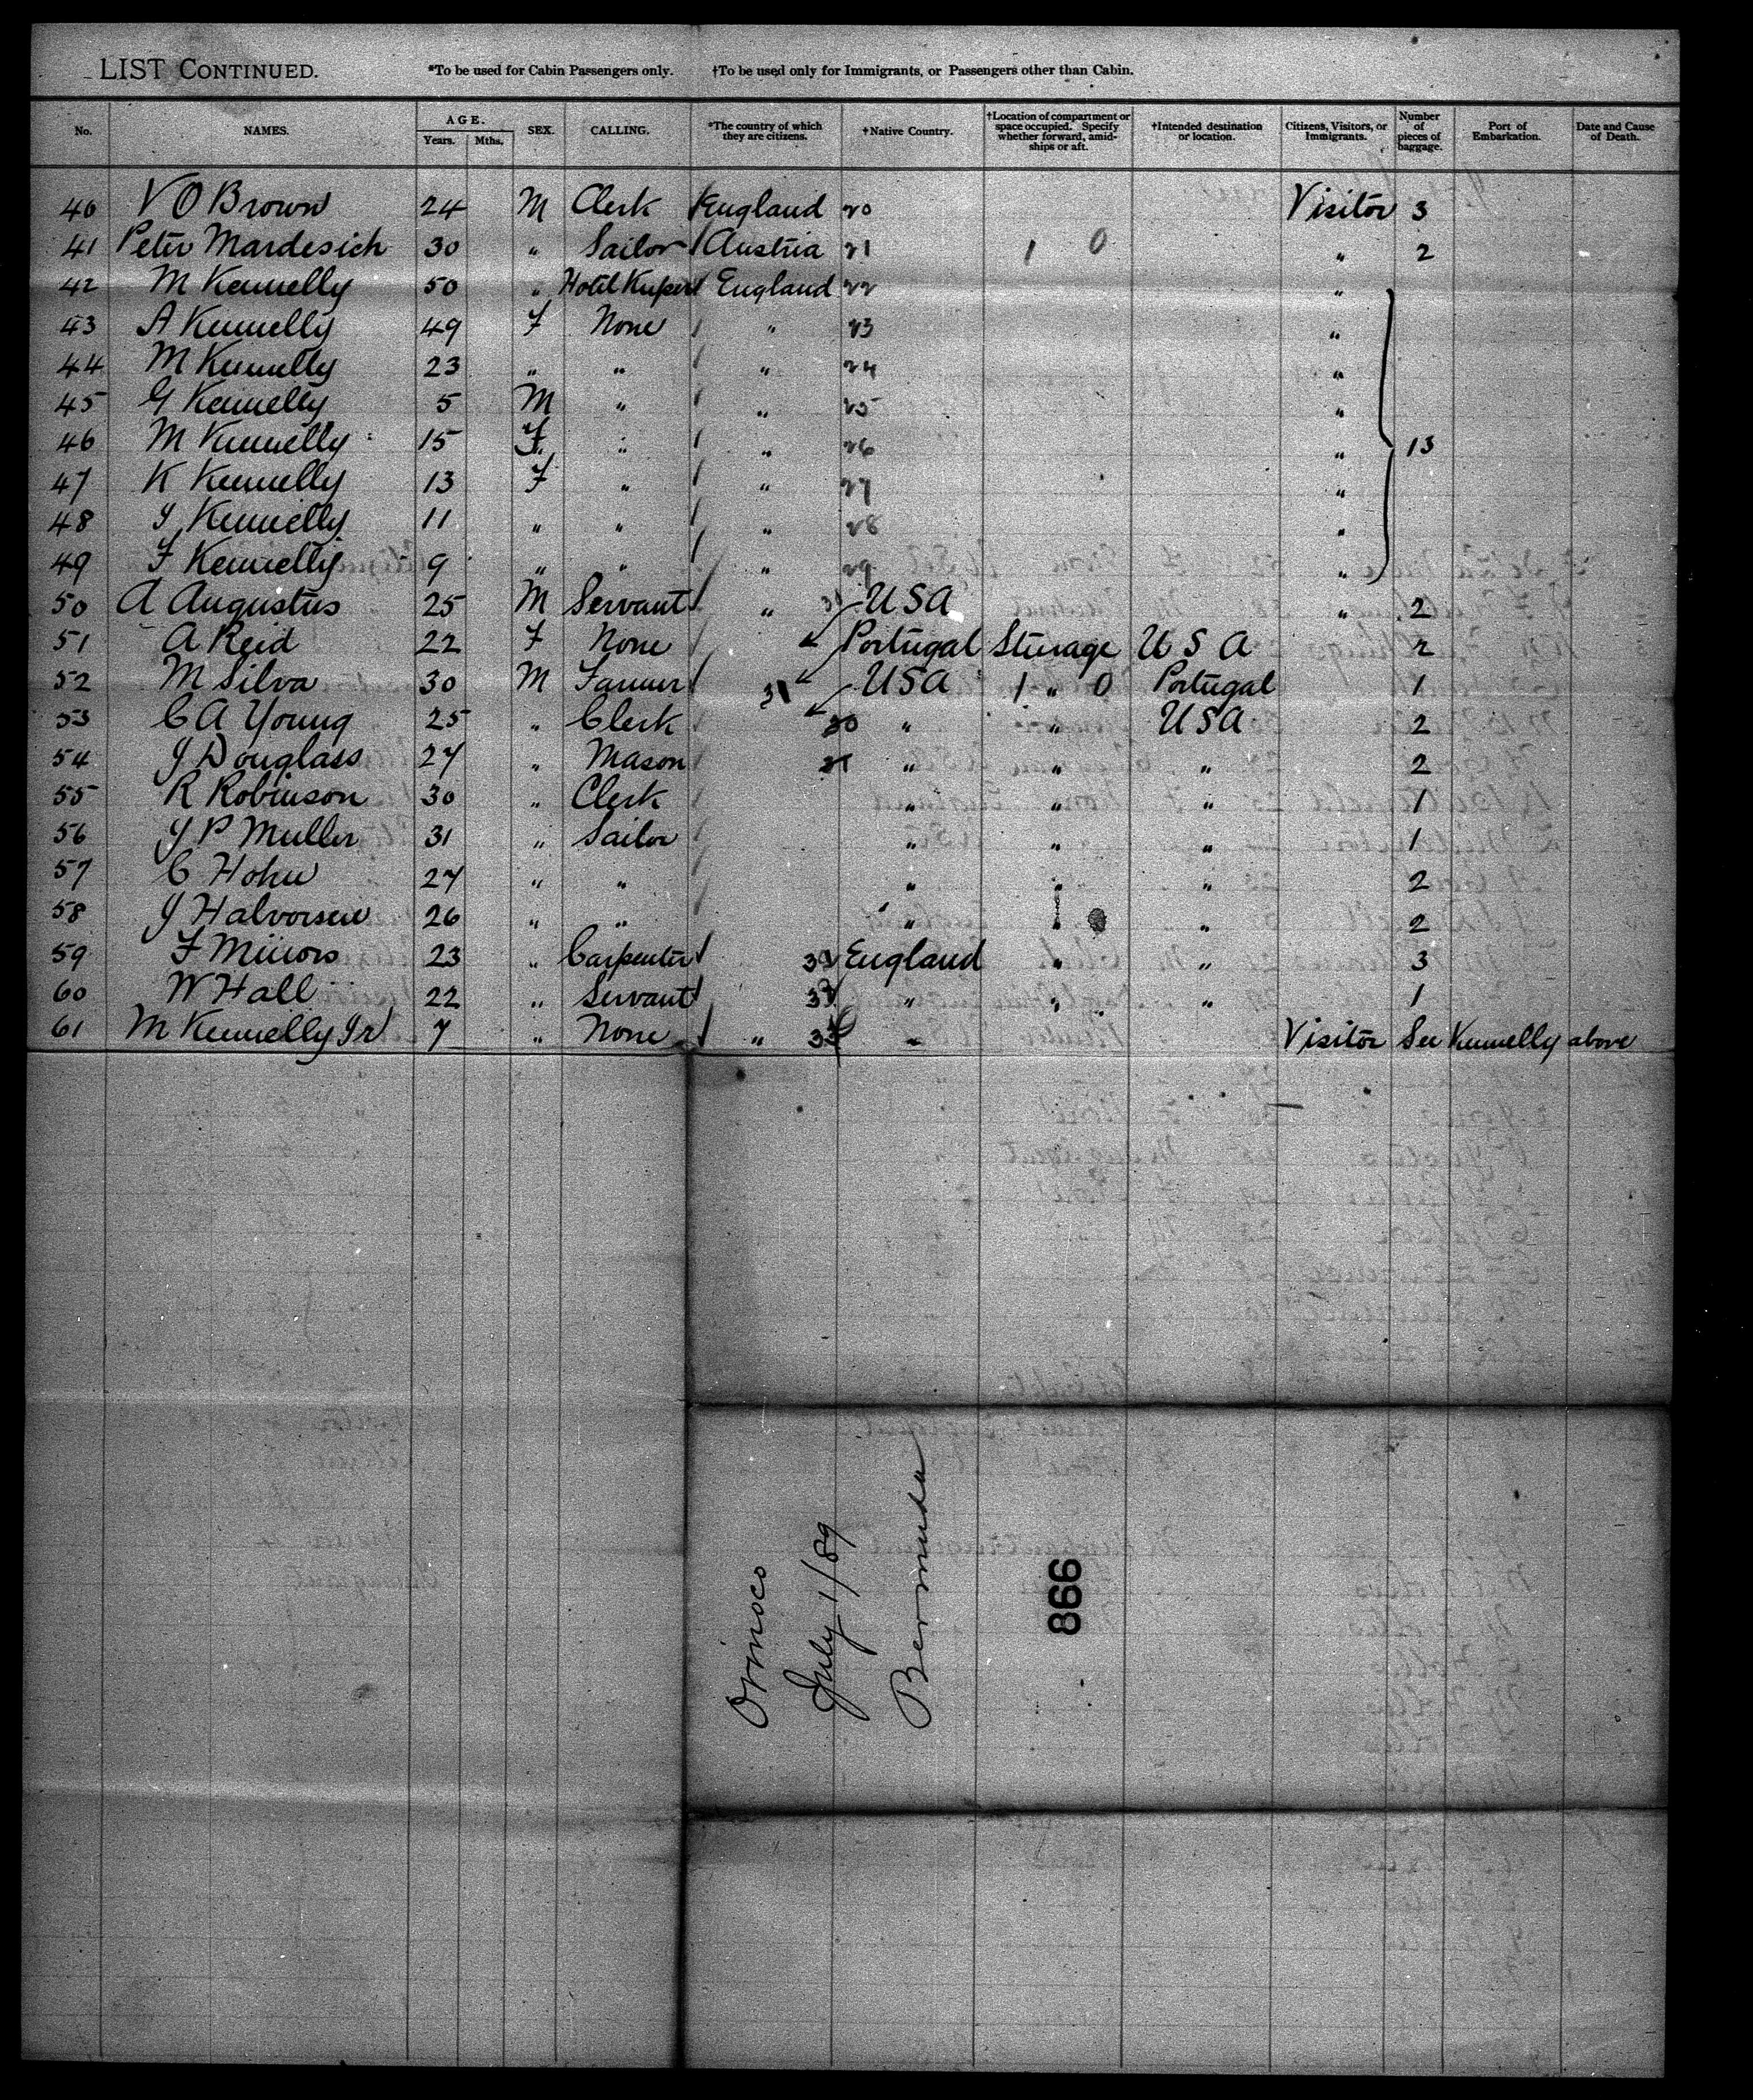 LIST CONTINUED. *To be used for Cabin Passengers only. †To be used only for Immigrants, or Passengers other than Cabin.
No. NAMES. AGE. Years. Mths. SEX. CALLING. *The country of which they are citizens. †Native Country. †Location of compartment or space occupied. Specify whether forward, amidships or aft. †Intended destination or location. Citizens, Visitors, or Immigrants. Number of pieces of baggage. Port of Embarkation. Date and Cause of Death.
40 V O Brown 24 M Clerk England 20 Visitor 3
41 Peter Mardesich 30 " Sailor Austria 21 1 0 " 2
42 M Kennelly 50 " Hotel Keeper England 22 "
43 A Kennelly 49 F None " 23 "
44 M Kennelly 23 " " " 24 "
45 G Kennelly 5 M " " 25 "
46 M Kennelly 15 F " " 26 " 13
47 K Kennelly 13 F " " 27 "
48 J Kennelly 11 " " " 28 "
49 F Kennelly 9 " " " 29 "
50 A Augustus 25 M Servant " USA " 2
51 A Reid 22 F None Portugal Sturage U S A 2
52 M Silva 30 M Farmer 31 USA 1 " 0 Portugal 1
53 C A Young 25 " Clerk 30 " " USA 2
54 J Douglass 27 " Mason " " " 2
55 R Robinson 30 " Clerk " " " 1
56 J P Muller 31 " Sailor " " " 1
57 C Hohn 27 " " " " " 2
58 J Halvorsen 26 " " " " 2
59 F Mirrors 23 " Carpenter England " " 3
60 W Hall 22 " Servant " " " 1
61 M Kennelly Jr 7 " None " " Visitor See Kennelly above
Orinoco
July 1/89
Bermuda
866